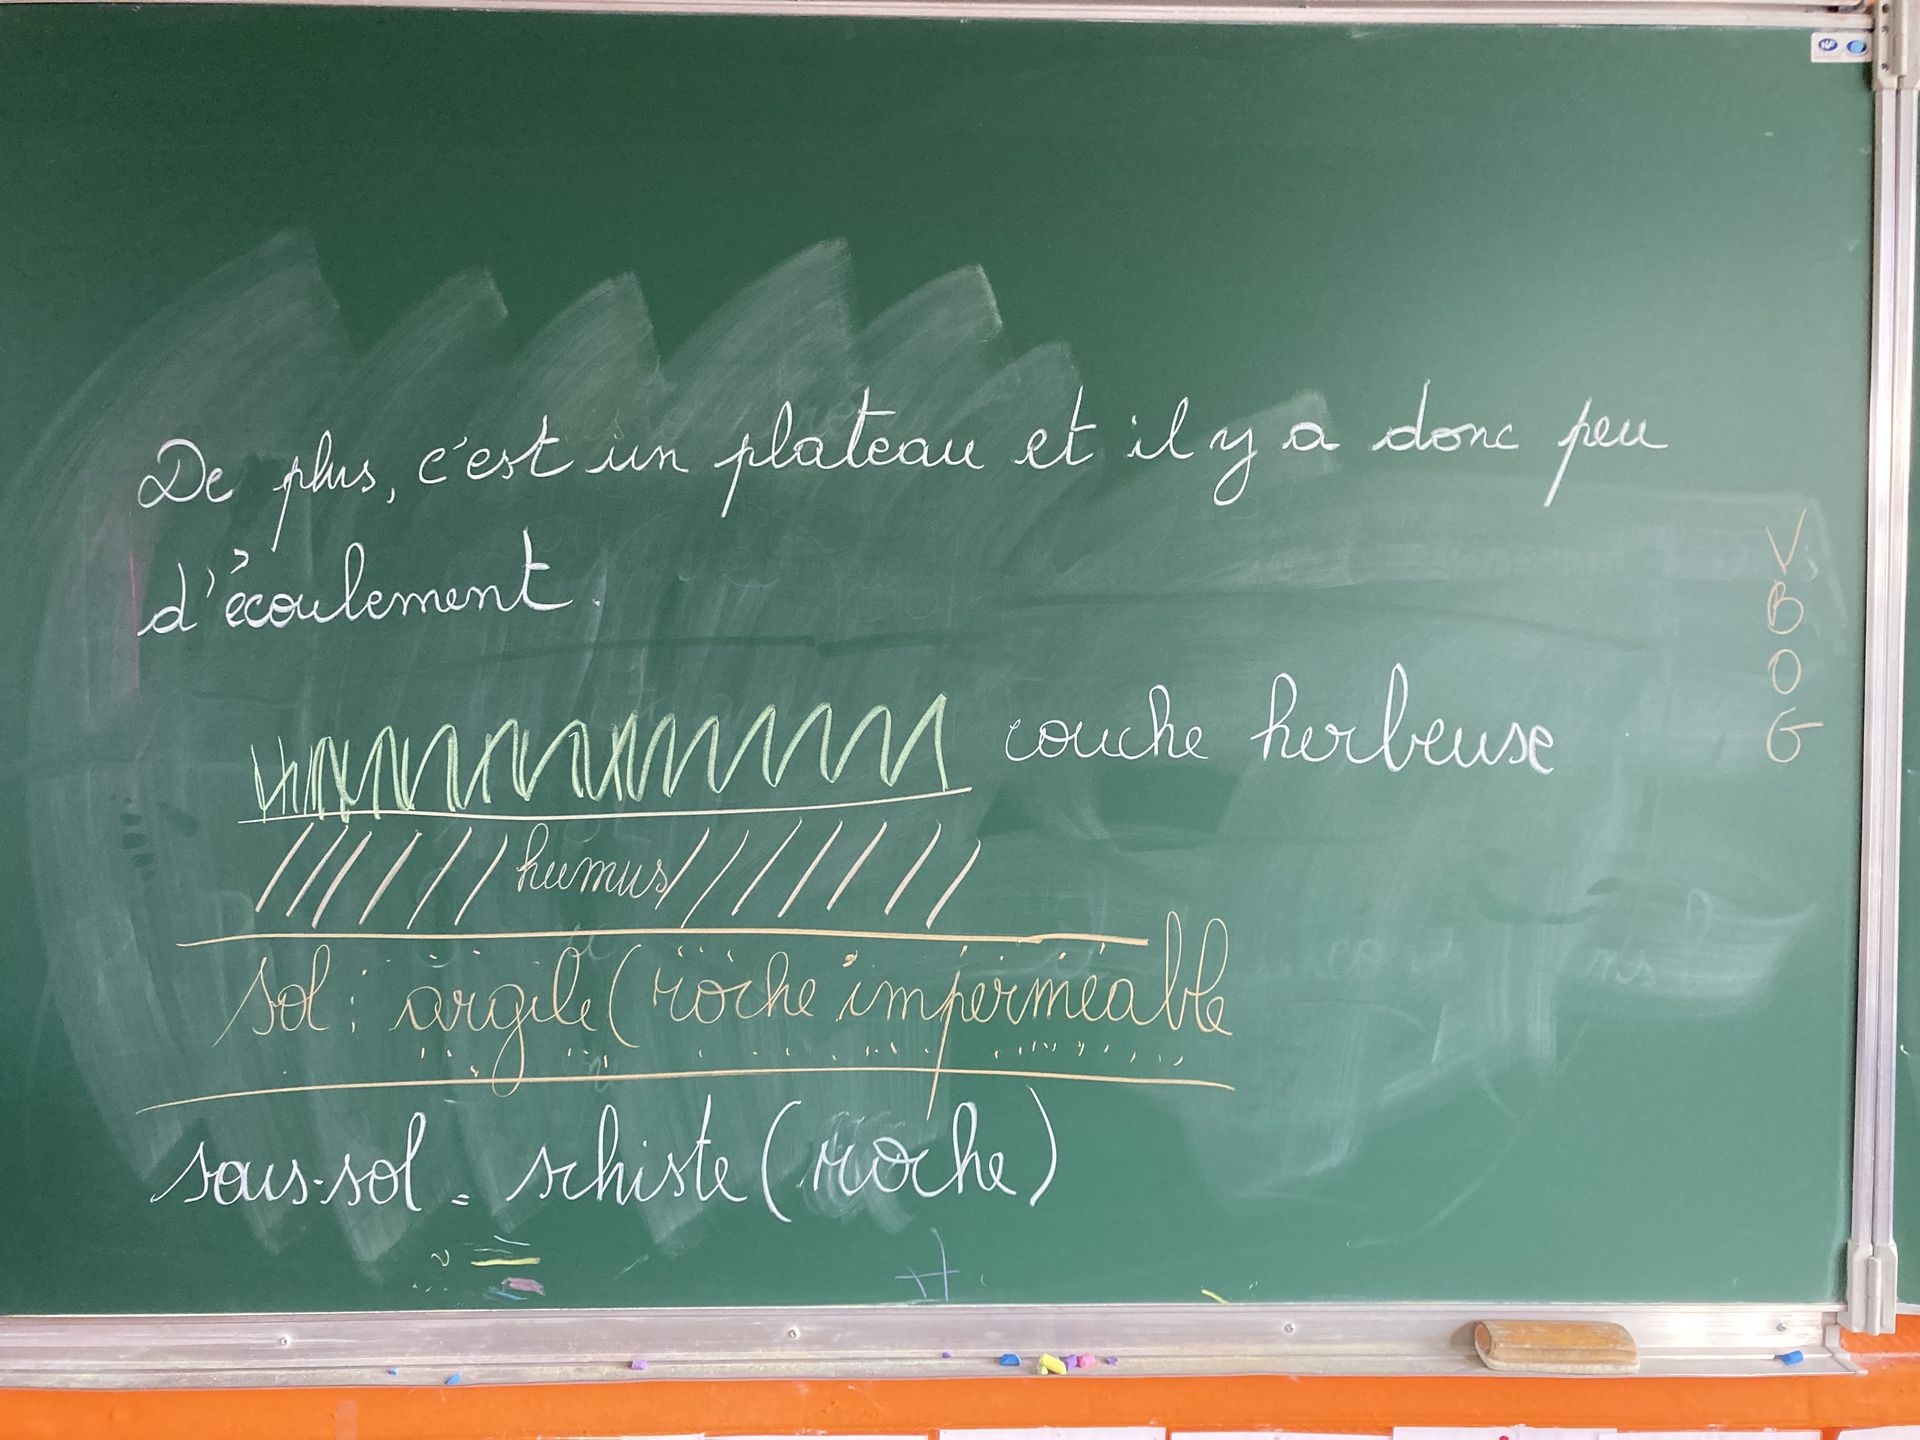 De plus, c'est un plateau et il y a donc peu
d'écoulement.
couche herbeuse
humus
sol : argile (roche imperméable
sous-sol = schiste (roche)
V
B
O
G